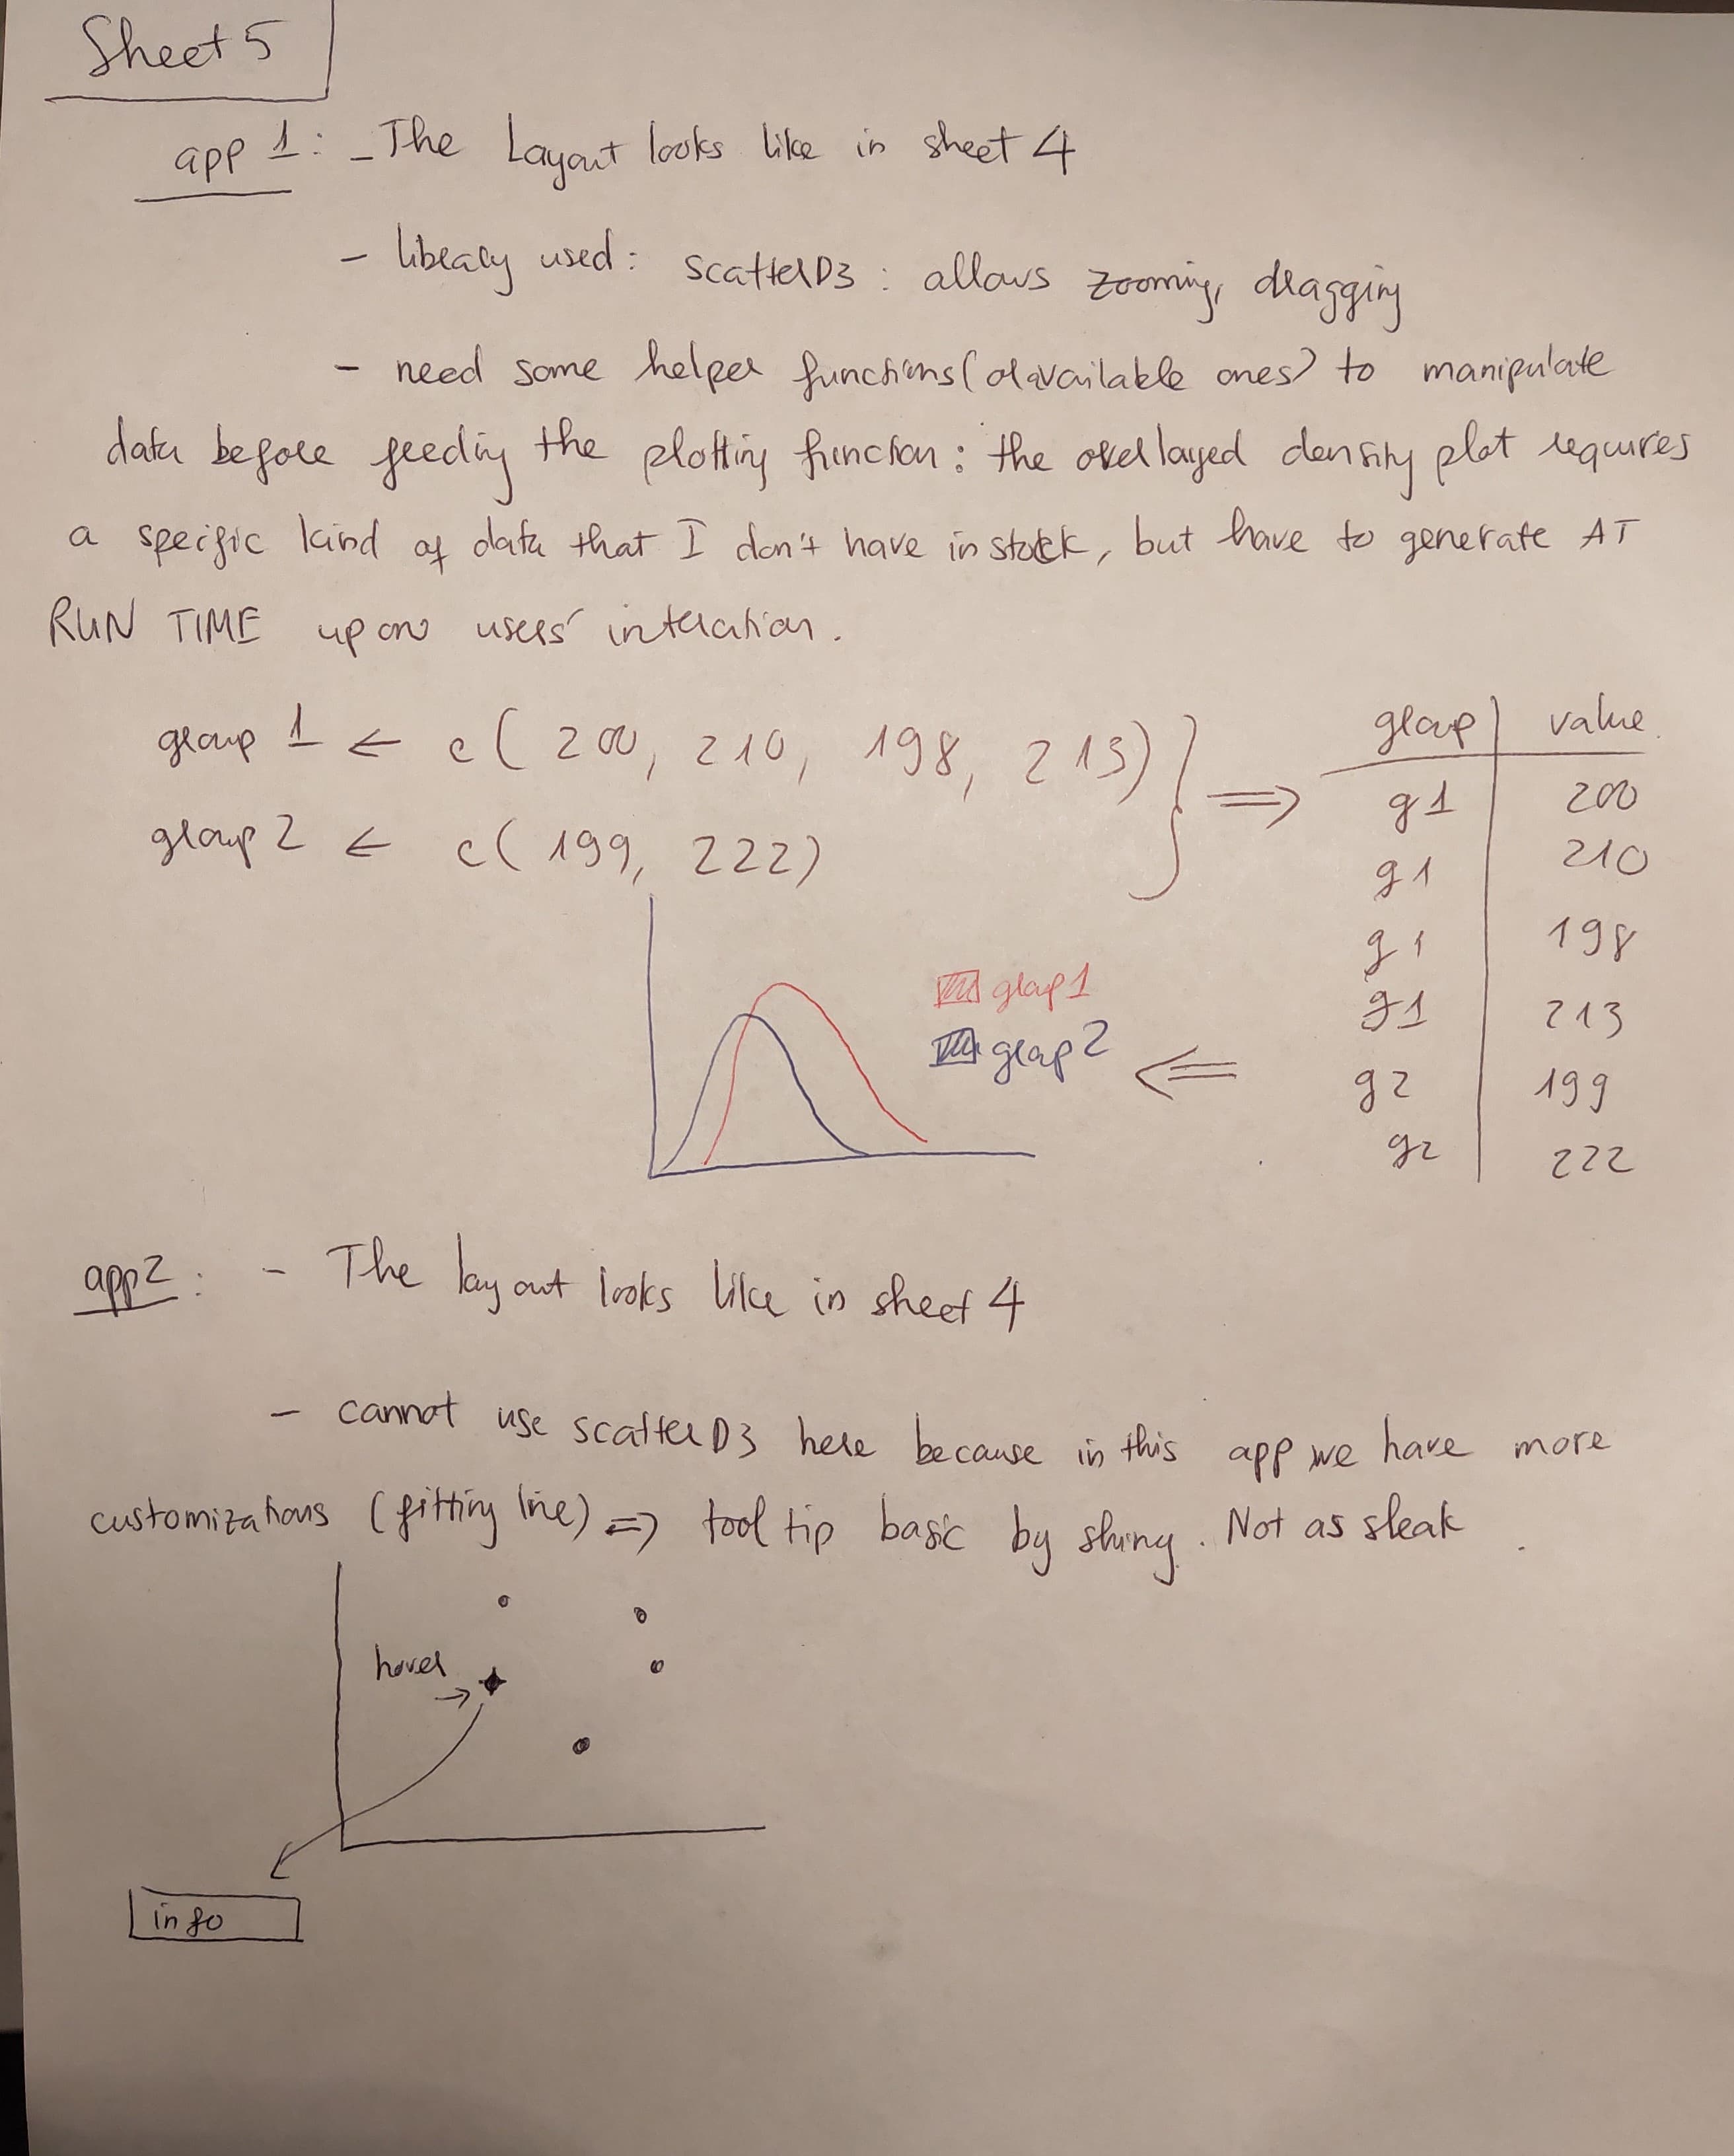 Sheet 5
app 1: - The Layout looks like in sheet 4
- library used: scatterD3: allows zooming, dragging
- need some helper functions (or available ones) to manipulate
data before feeding the plotting function: the overlayed density plot requires
a specific kind of data that I don't have in stock, but have to generate AT
RUN TIME upon users' interation.
group 1 ← c( 200, 210, 198, 213) } ⇒
group 2 ← c( 199, 222)
group | value
g1 200
g1 210
g1 198
g1 213
g2 199
g2 222
group 1
group 2 ⇐
app2: - The layout looks like in sheet 4
- cannot use scatterD3 here because in this app we have more
customizations (fitting line) => tool tip basic by shiny. Not as sleak.
hover →
info